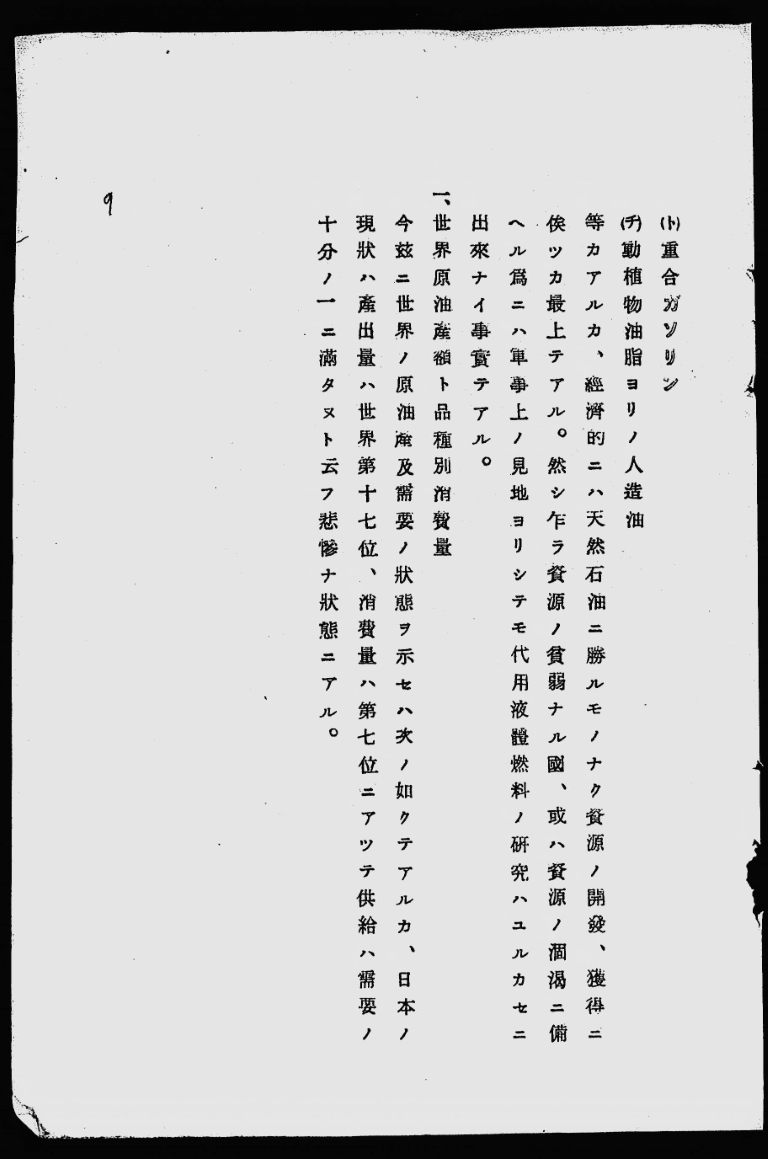 (ト)重合ガソリン
(チ)動植物油脂ヨリノ人造油
等カアルカ、經濟的ニハ天然石油ニ勝ルモノナク資源ノ開發、獲得ニ
俟ツカ最上テアル。然シ乍ラ資源ノ貧弱ナル國、或ハ資源ノ涸渇ニ備
ヘル爲ニハ軍事上ノ見地ヨリシテモ代用液體燃料ノ硏究ハユルカセニ
出來ナイ事實テアル。
一、世界原油產額ト品種別消費量
今玆ニ世界ノ原油產及需要ノ狀態ヲ示セハ次ノ如クテアルカ、日本ノ
現狀ハ產出量ハ世界第十七位、消費量ハ第七位ニアツテ供給ハ需要ノ
十分ノ一ニ滿タヌト云フ悲慘ナ狀態ニアル。
9